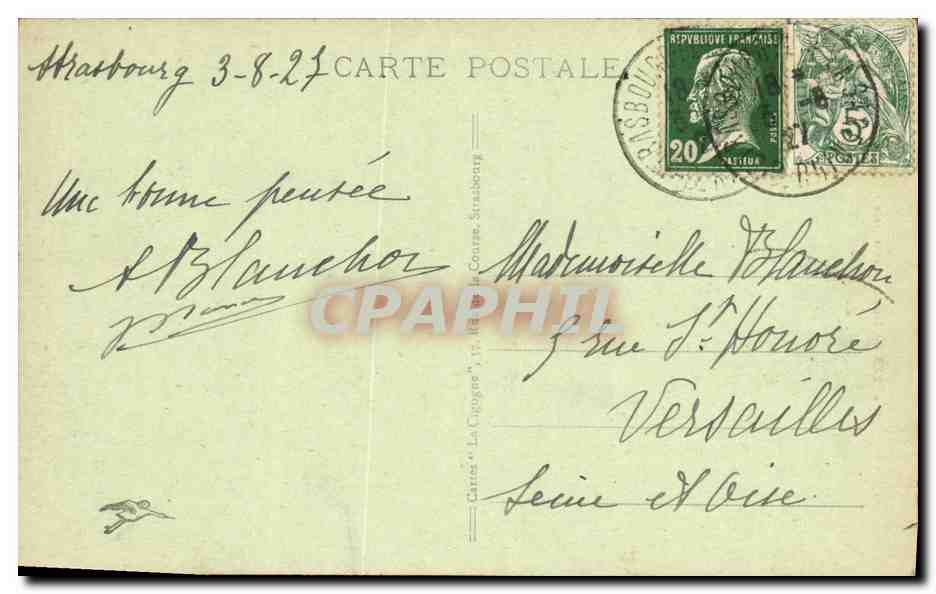 Strasbourg 3-8-27
CARTE POSTALE
REPVBLIQUE FRANÇAISE
20c
POSTES
PASTEUR
5
POSTES
STRASBOURG
18
Une bonne pensée
A Blanchon
CPAPHIL
Cartes "La Cigogne", 17, Rue de la Course, Strasbourg
Mademoiselle Blanchon
5 rue St Honoré
Versailles
Seine et Oise